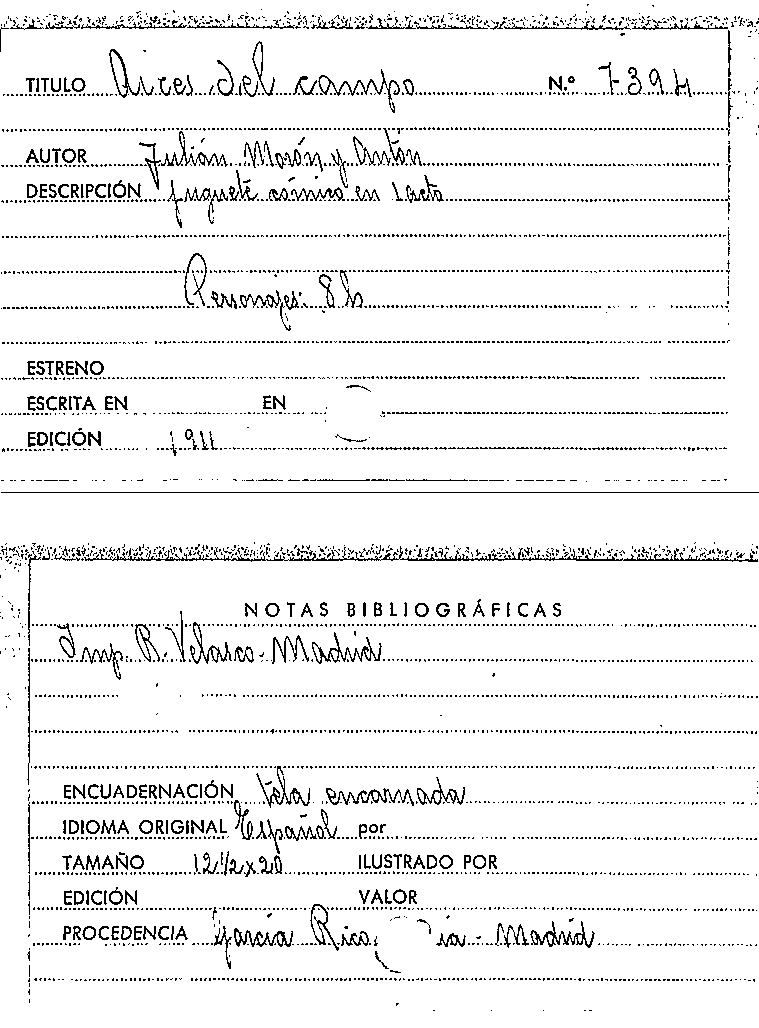 TITULO Aires del campo N.º 7-394
AUTOR Julián Morón y Antón
DESCRIPCIÓN Juguete cómico en 1 acto
Personajes: 8 h
ESTRENO
ESCRITA EN EN
EDICIÓN 1911
NOTAS BIBLIOGRÁFICAS
Imp. R. Velasco - Madrid
ENCUADERNACIÓN tela encarnada
IDIOMA ORIGINAL Español por
TAMAÑO 12 1/2 x 20 ILUSTRADO POR
EDICIÓN VALOR
PROCEDENCIA García Rico, ia - Madrid